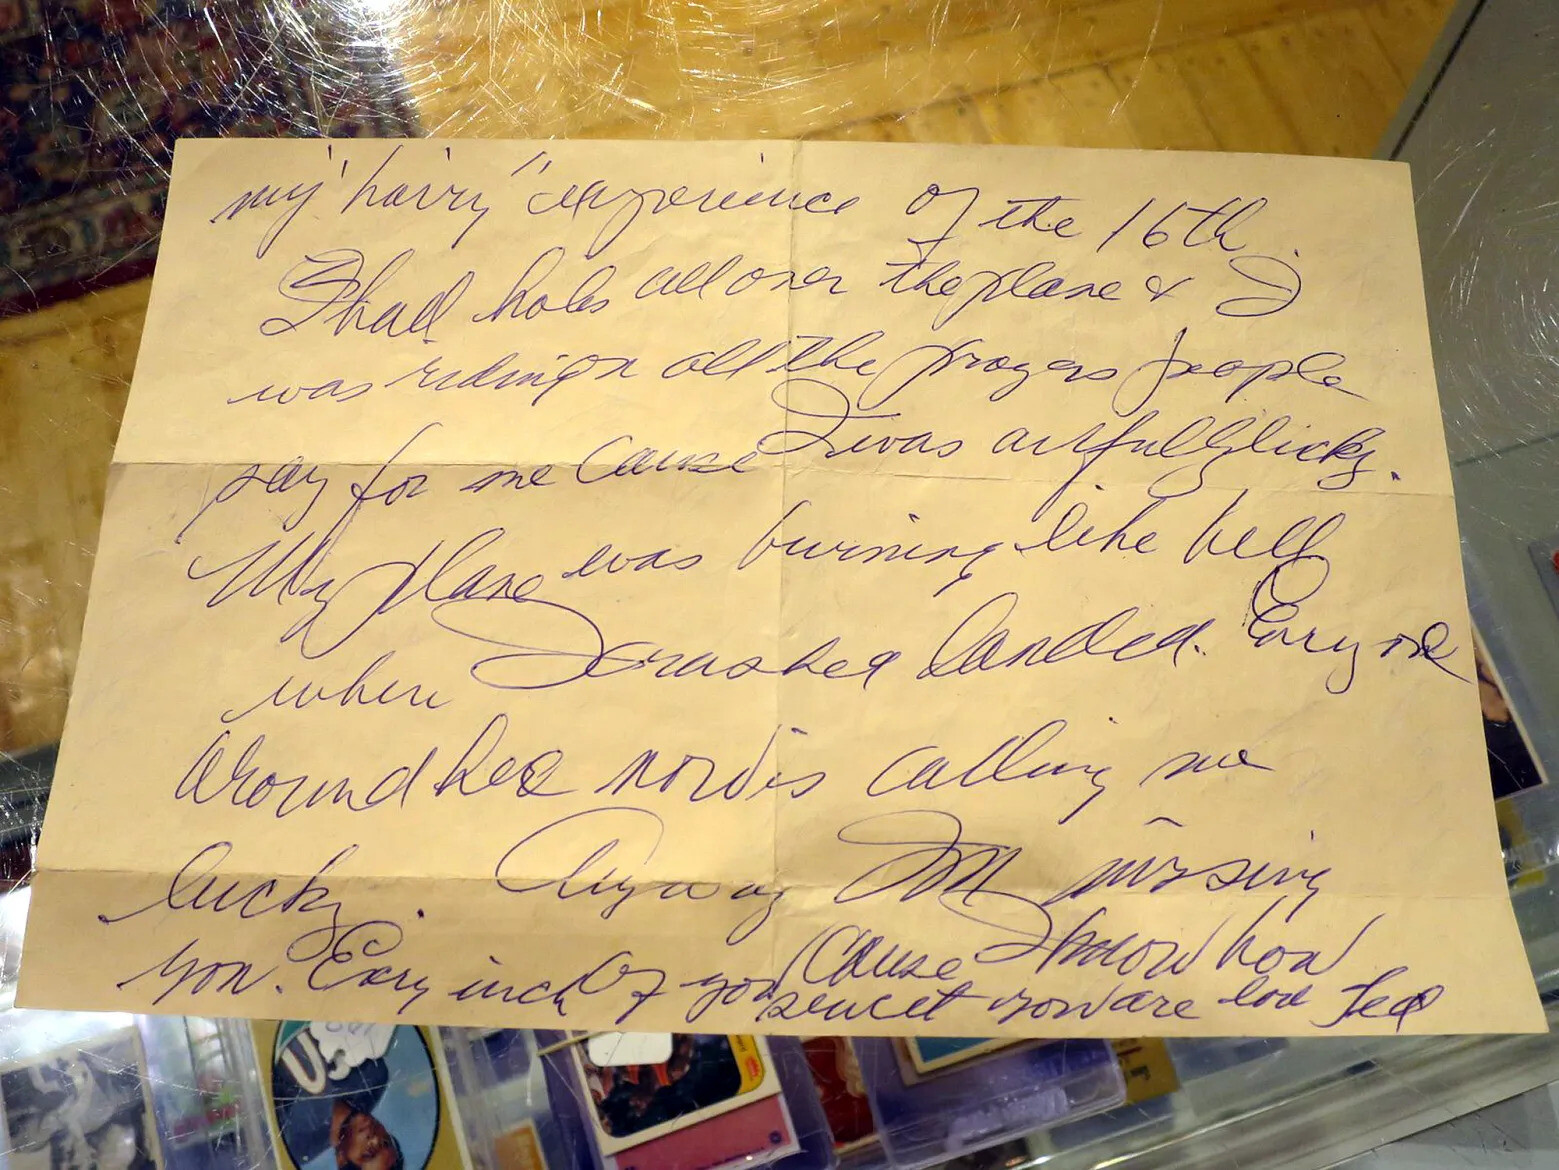 my "hairy" experience of the 16th.
I had holes all over the plane & I
was riding on all the prayers people
say for me cause I was awfully lucky.
My plane was burning like hell
where I crashed landed. Every one
around here now is calling me
lucky. Anyway I'm missing
you. Every inch of you cause I know how
sweet you are Ted